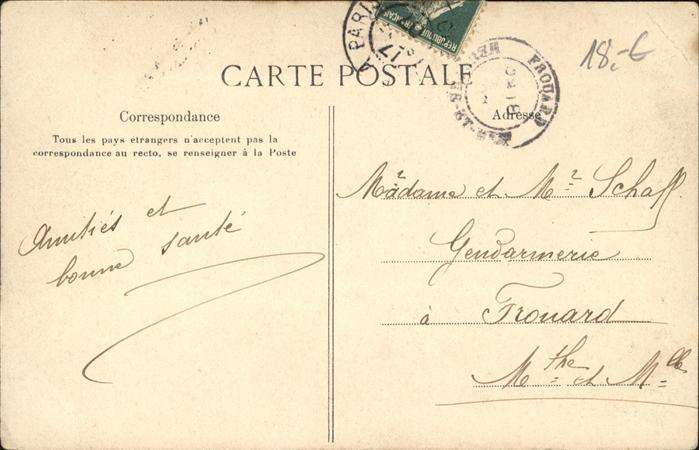 RÉPUBLIQUE FRANÇAISE
PARIS
18,-€
CARTE POSTALE
FROUARD
MTHE-ET-MLLE
Correspondance
Adresse
Tous les pays étrangers n'acceptent pas la
correspondance au recto, se renseigner à la Poste
Amitiés et
bonne santé
Madame et Mr Schaff
Gendarmerie
à Frouard
Mthe et Mlle